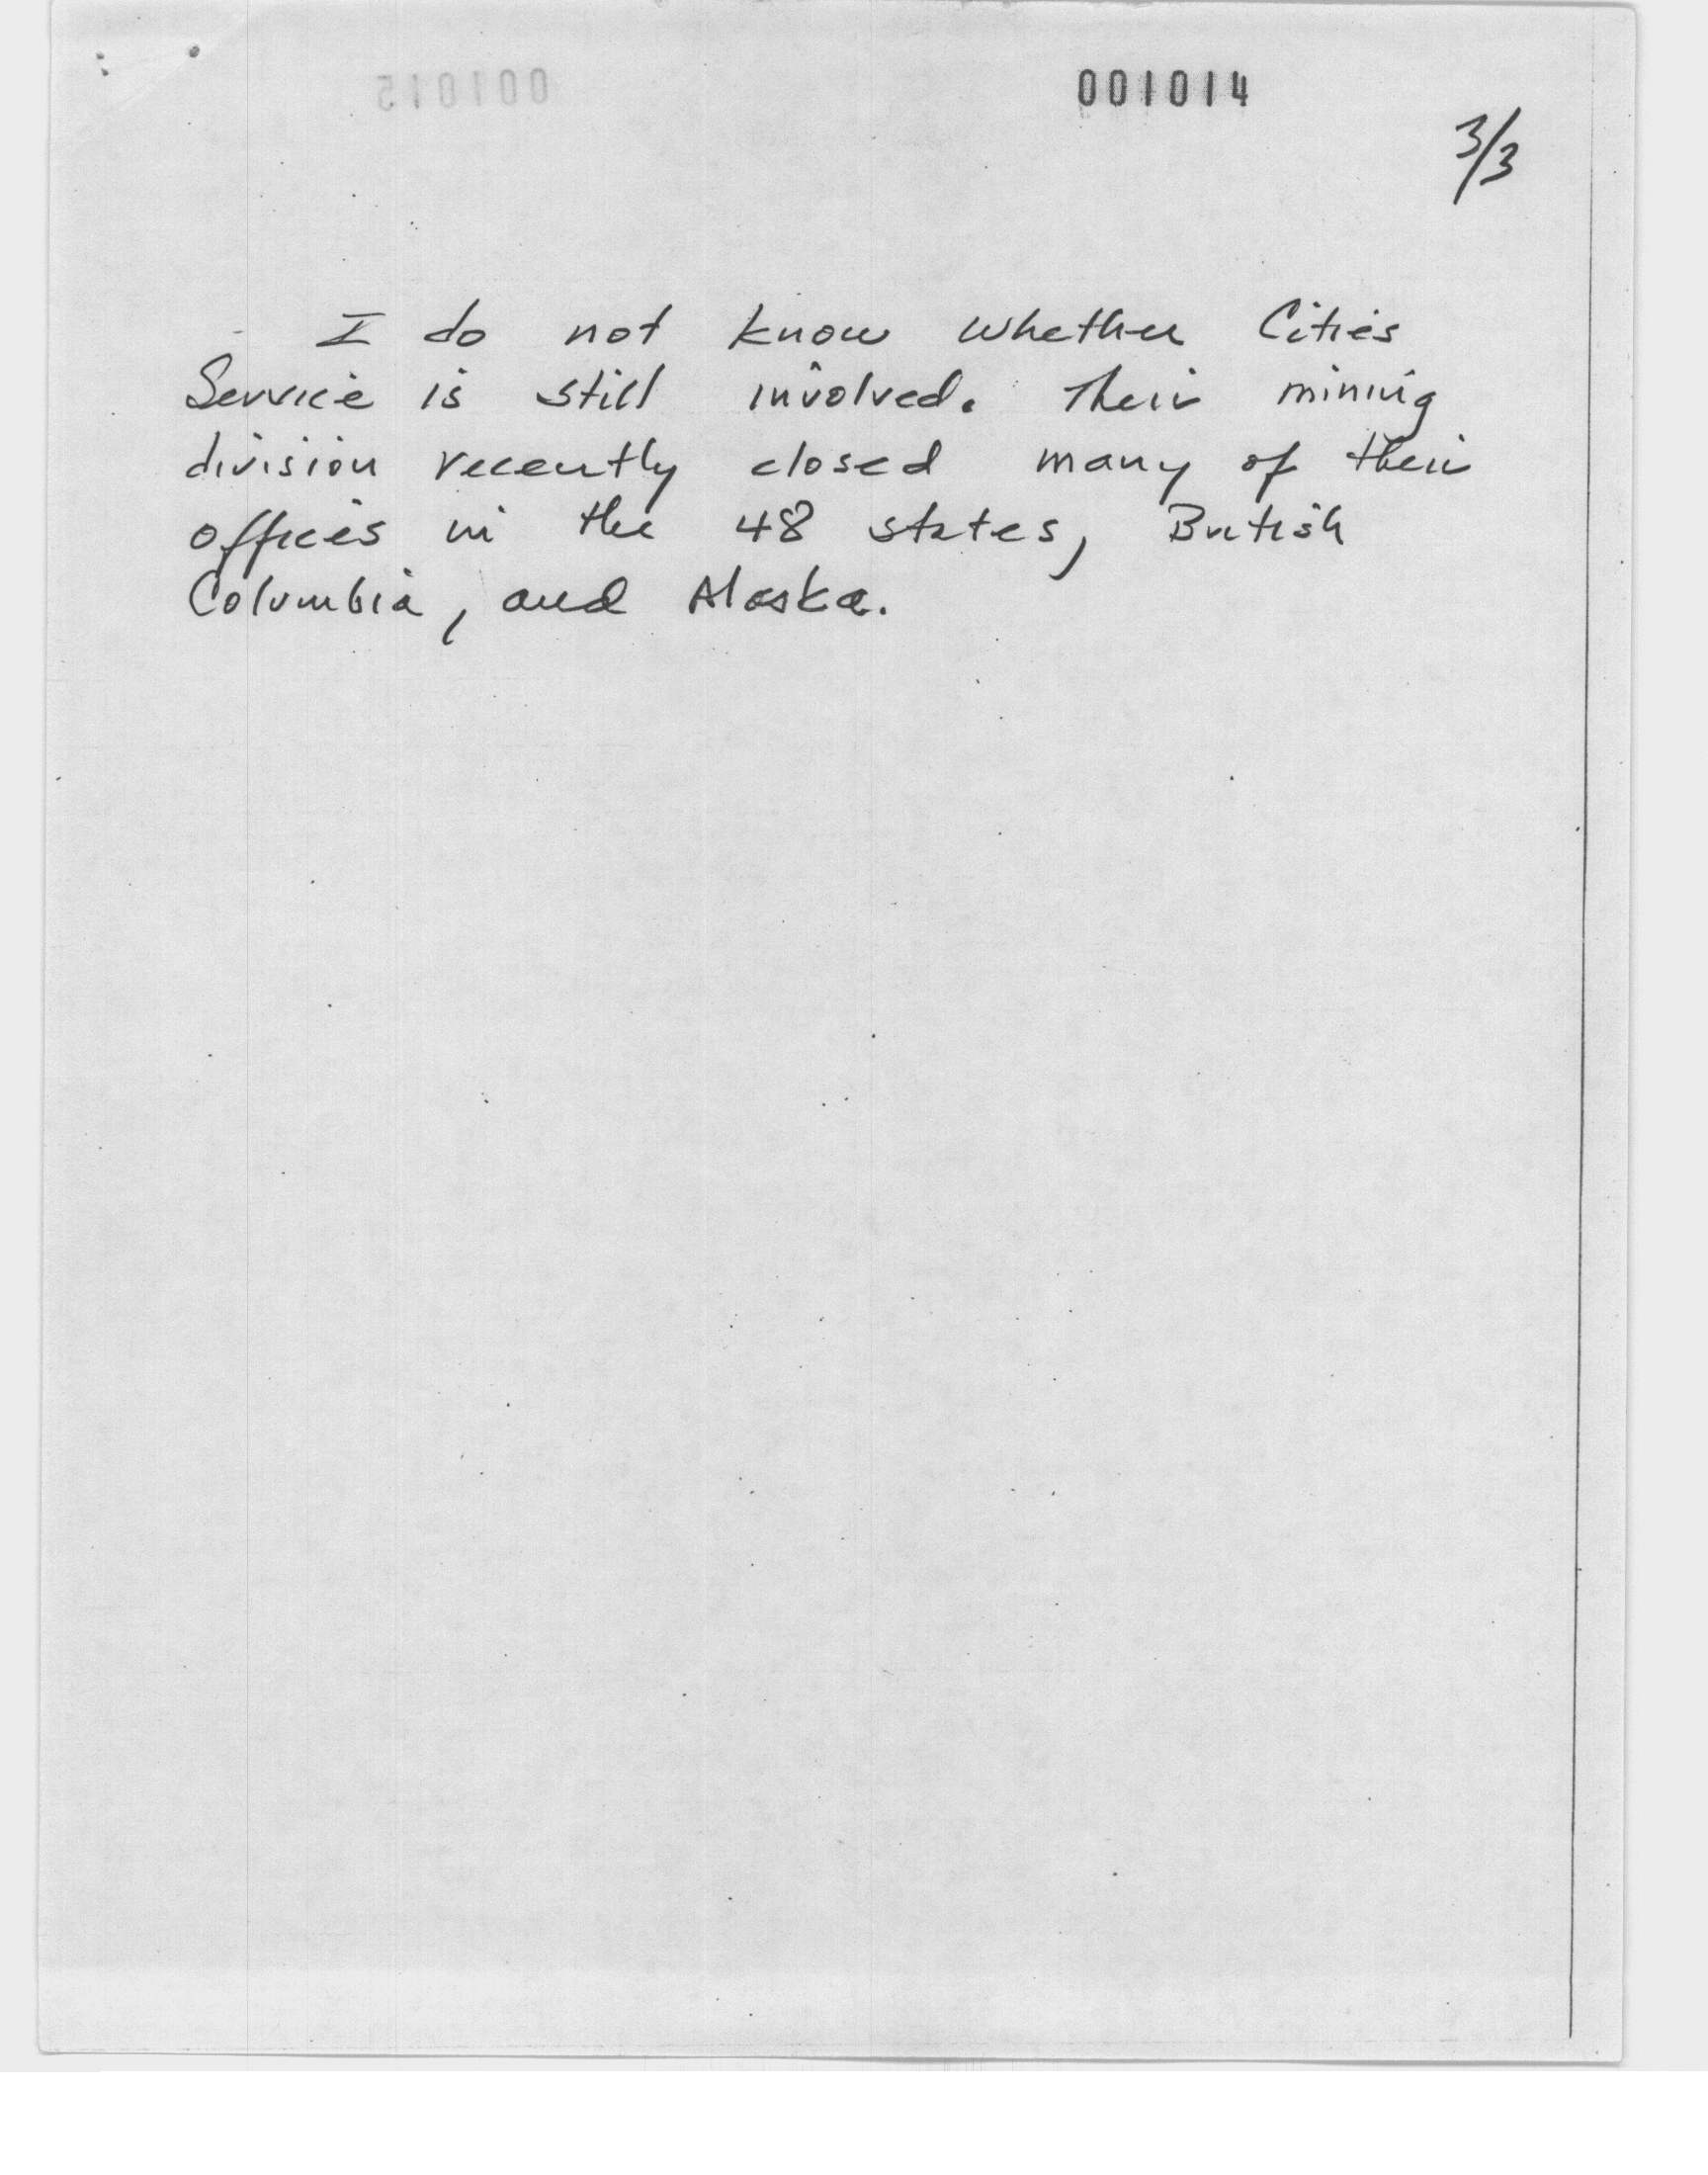 001015 001014
3/3
I do not know whether Cities
Service is still involved. Their mining
division recently closed many of their
offices in the 48 states, British
Columbia, and Alaska.